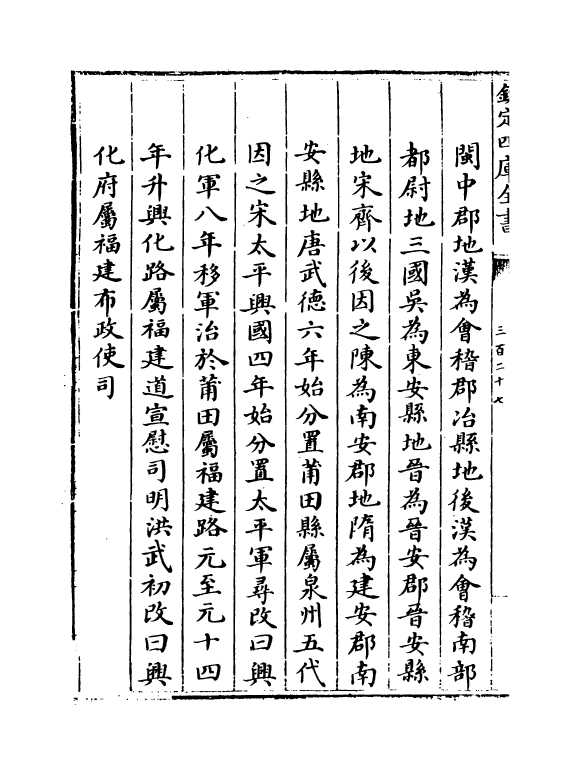 欽定四庫全書
三百二十七
閩中郡地漢為會稽郡冶縣地後漢為會稽南部
都尉地三國吳為東安縣地晉為晉安郡晉安縣
地宋齊以後因之陳為南安郡地隋為建安郡南
安縣地唐武德六年始分置莆田縣屬泉州五代
因之宋太平興國四年始分置太平軍尋改曰興
化軍八年移軍治於莆田屬福建路元至元十四
年升興化路屬福建道宣慰司明洪武初改曰興
化府屬福建布政使司